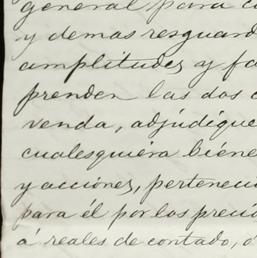 general para c
y demas resguard
amplitudes y fa
prenden las dos c
venda, adjudique
cualesquiera biene
y acciones, pertenecie
para él por los precio
á reales de contado, ó